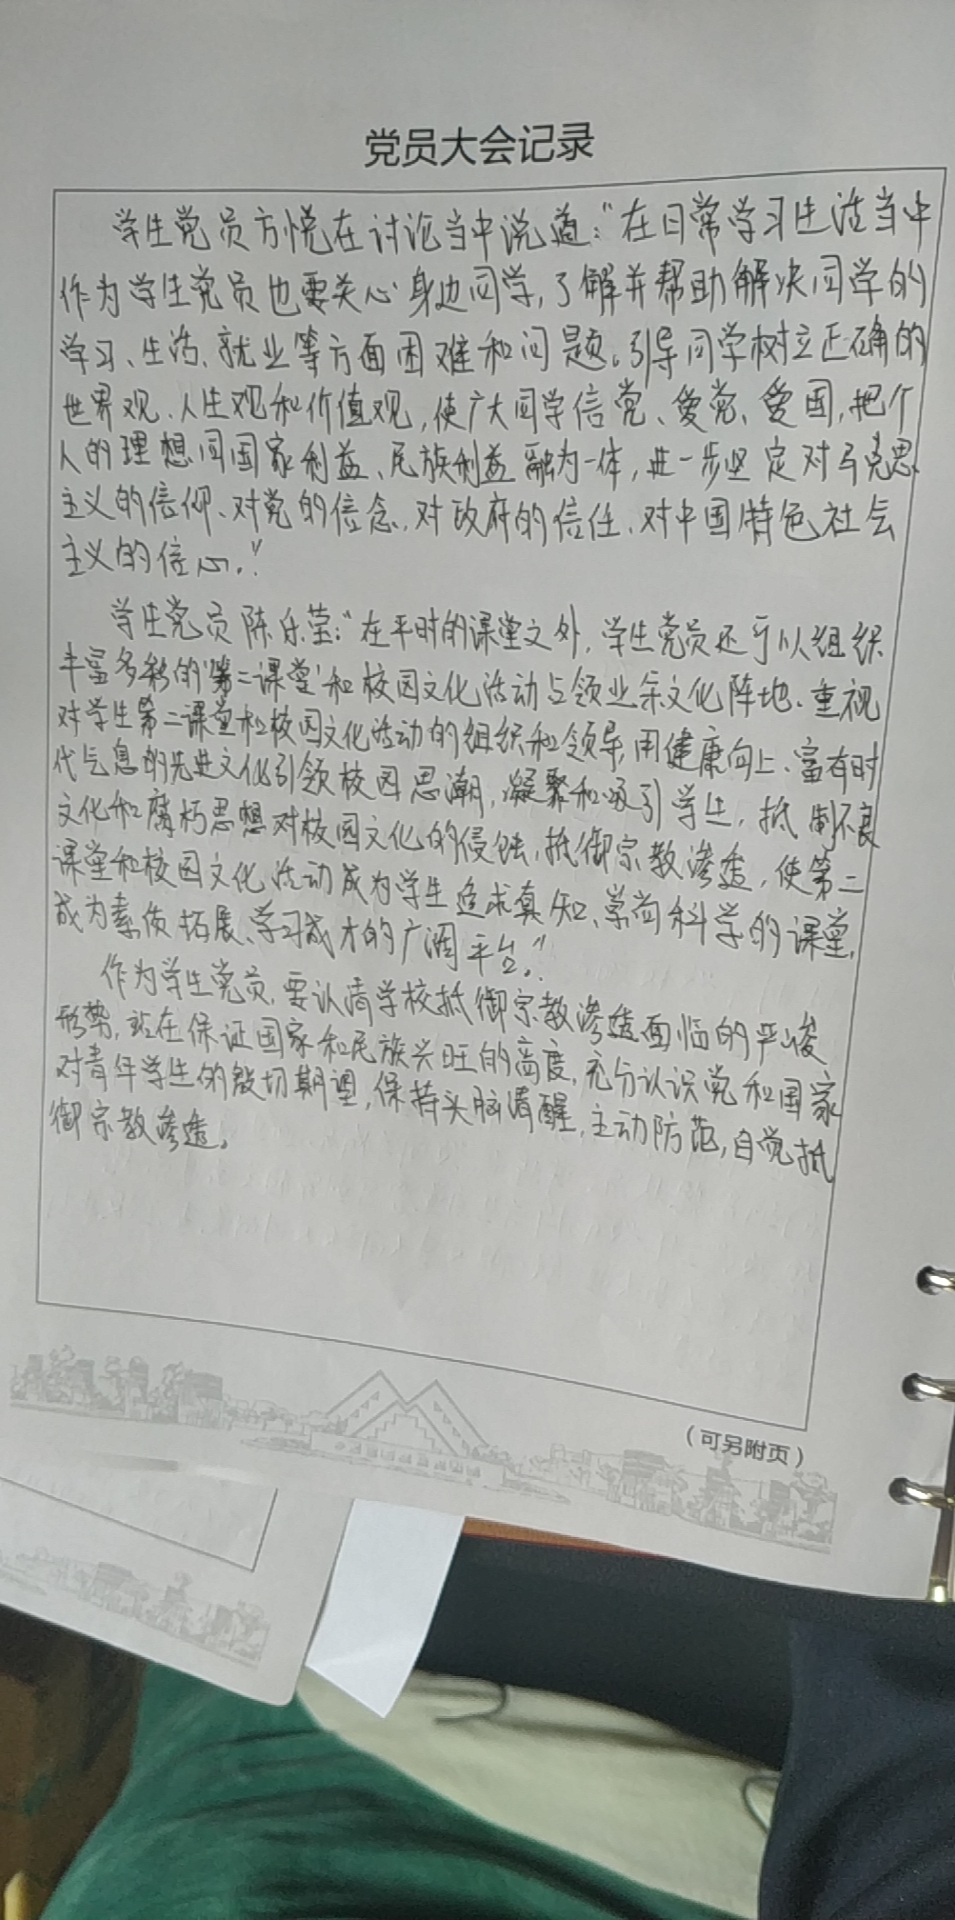 党员大会记录
学生党员方悦在讨论当中说道：“在日常学习生活当中
作为学生党员也要关心身边同学，了解并帮助解决同学的
学习、生活、就业等方面困难和问题。引导同学树立正确的
世界观、人生观和价值观，使广大同学信党、爱党、爱国，把个
人的理想同国家利益、民族利益融为一体，进一步坚定对马克思
主义的信仰、对党的信念、对政府的信任、对中国特色社会
主义的信心。”
学生党员陈乐莹：“在平时的课堂之外，学生党员还可以组织
丰富多彩的‘第二课堂’和校园文化活动占领业余文化阵地、重视
对学生第二课堂和校园文化活动的组织和领导，用健康向上、富有时
代气息的先进文化引领校园思潮，凝聚和吸引学生，抵制不良
文化和腐朽思想对校园文化的侵蚀，抵御宗教渗透，使第二
课堂和校园文化活动成为学生追求真知、崇尚科学的课堂，
成为素质拓展、学习成才的广阔平台。”
作为学生党员，要认清学校抵御宗教渗透面临的严峻
形势，站在保证国家和民族兴旺的高度，充分认识党和国家
对青年学生的殷切期望，保持头脑清醒，主动防范，自觉抵
御宗教渗透。
（可另附页）